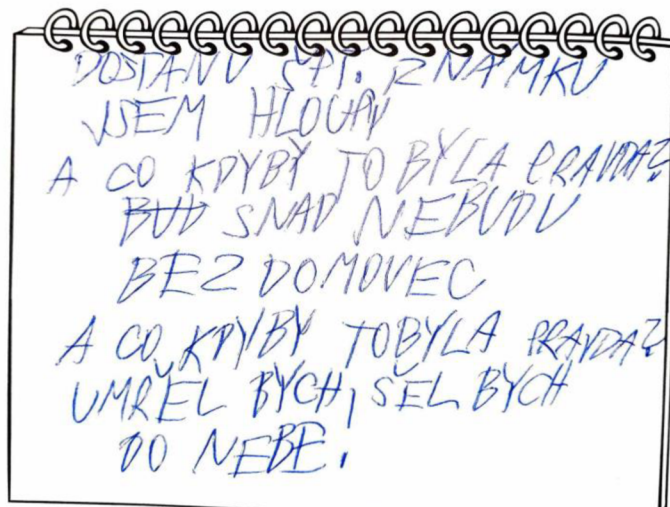 DOSTANU ŠPT. ZNÁMKU
JSEM HLOUPÝ
A CO KDYBY TO BYLA PRAVDA?
BUD SNAD NEBUDU
BEZDOMOVEC
A CO KDYBY TO BYLA PRAVDA?
UMŘEL BYCH, ŠEL BYCH
DO NEBE.